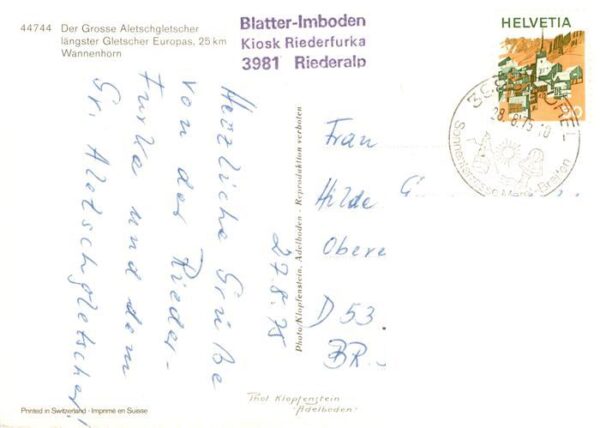 44744 Der Grosse Aletschgletscher
längster Gletscher Europas, 25 km
Wannenhorn
Blatter-Imboden
Kiosk Riederfurka
3981 Riederalp
HELVETIA
Sonnenterrasse
Herzliche Grüße
von der Rieder-
furka und dem
Gr. Aletschgletscher!
27.8.75
Photo Klopfenstein, Adelboden - Reproduktion verboten
Frau
Hilde G
Obere
D 53
BR.-
Phot Klopfenstein
"Adelboden"
Printed in Switzerland - Imprimé en Suisse